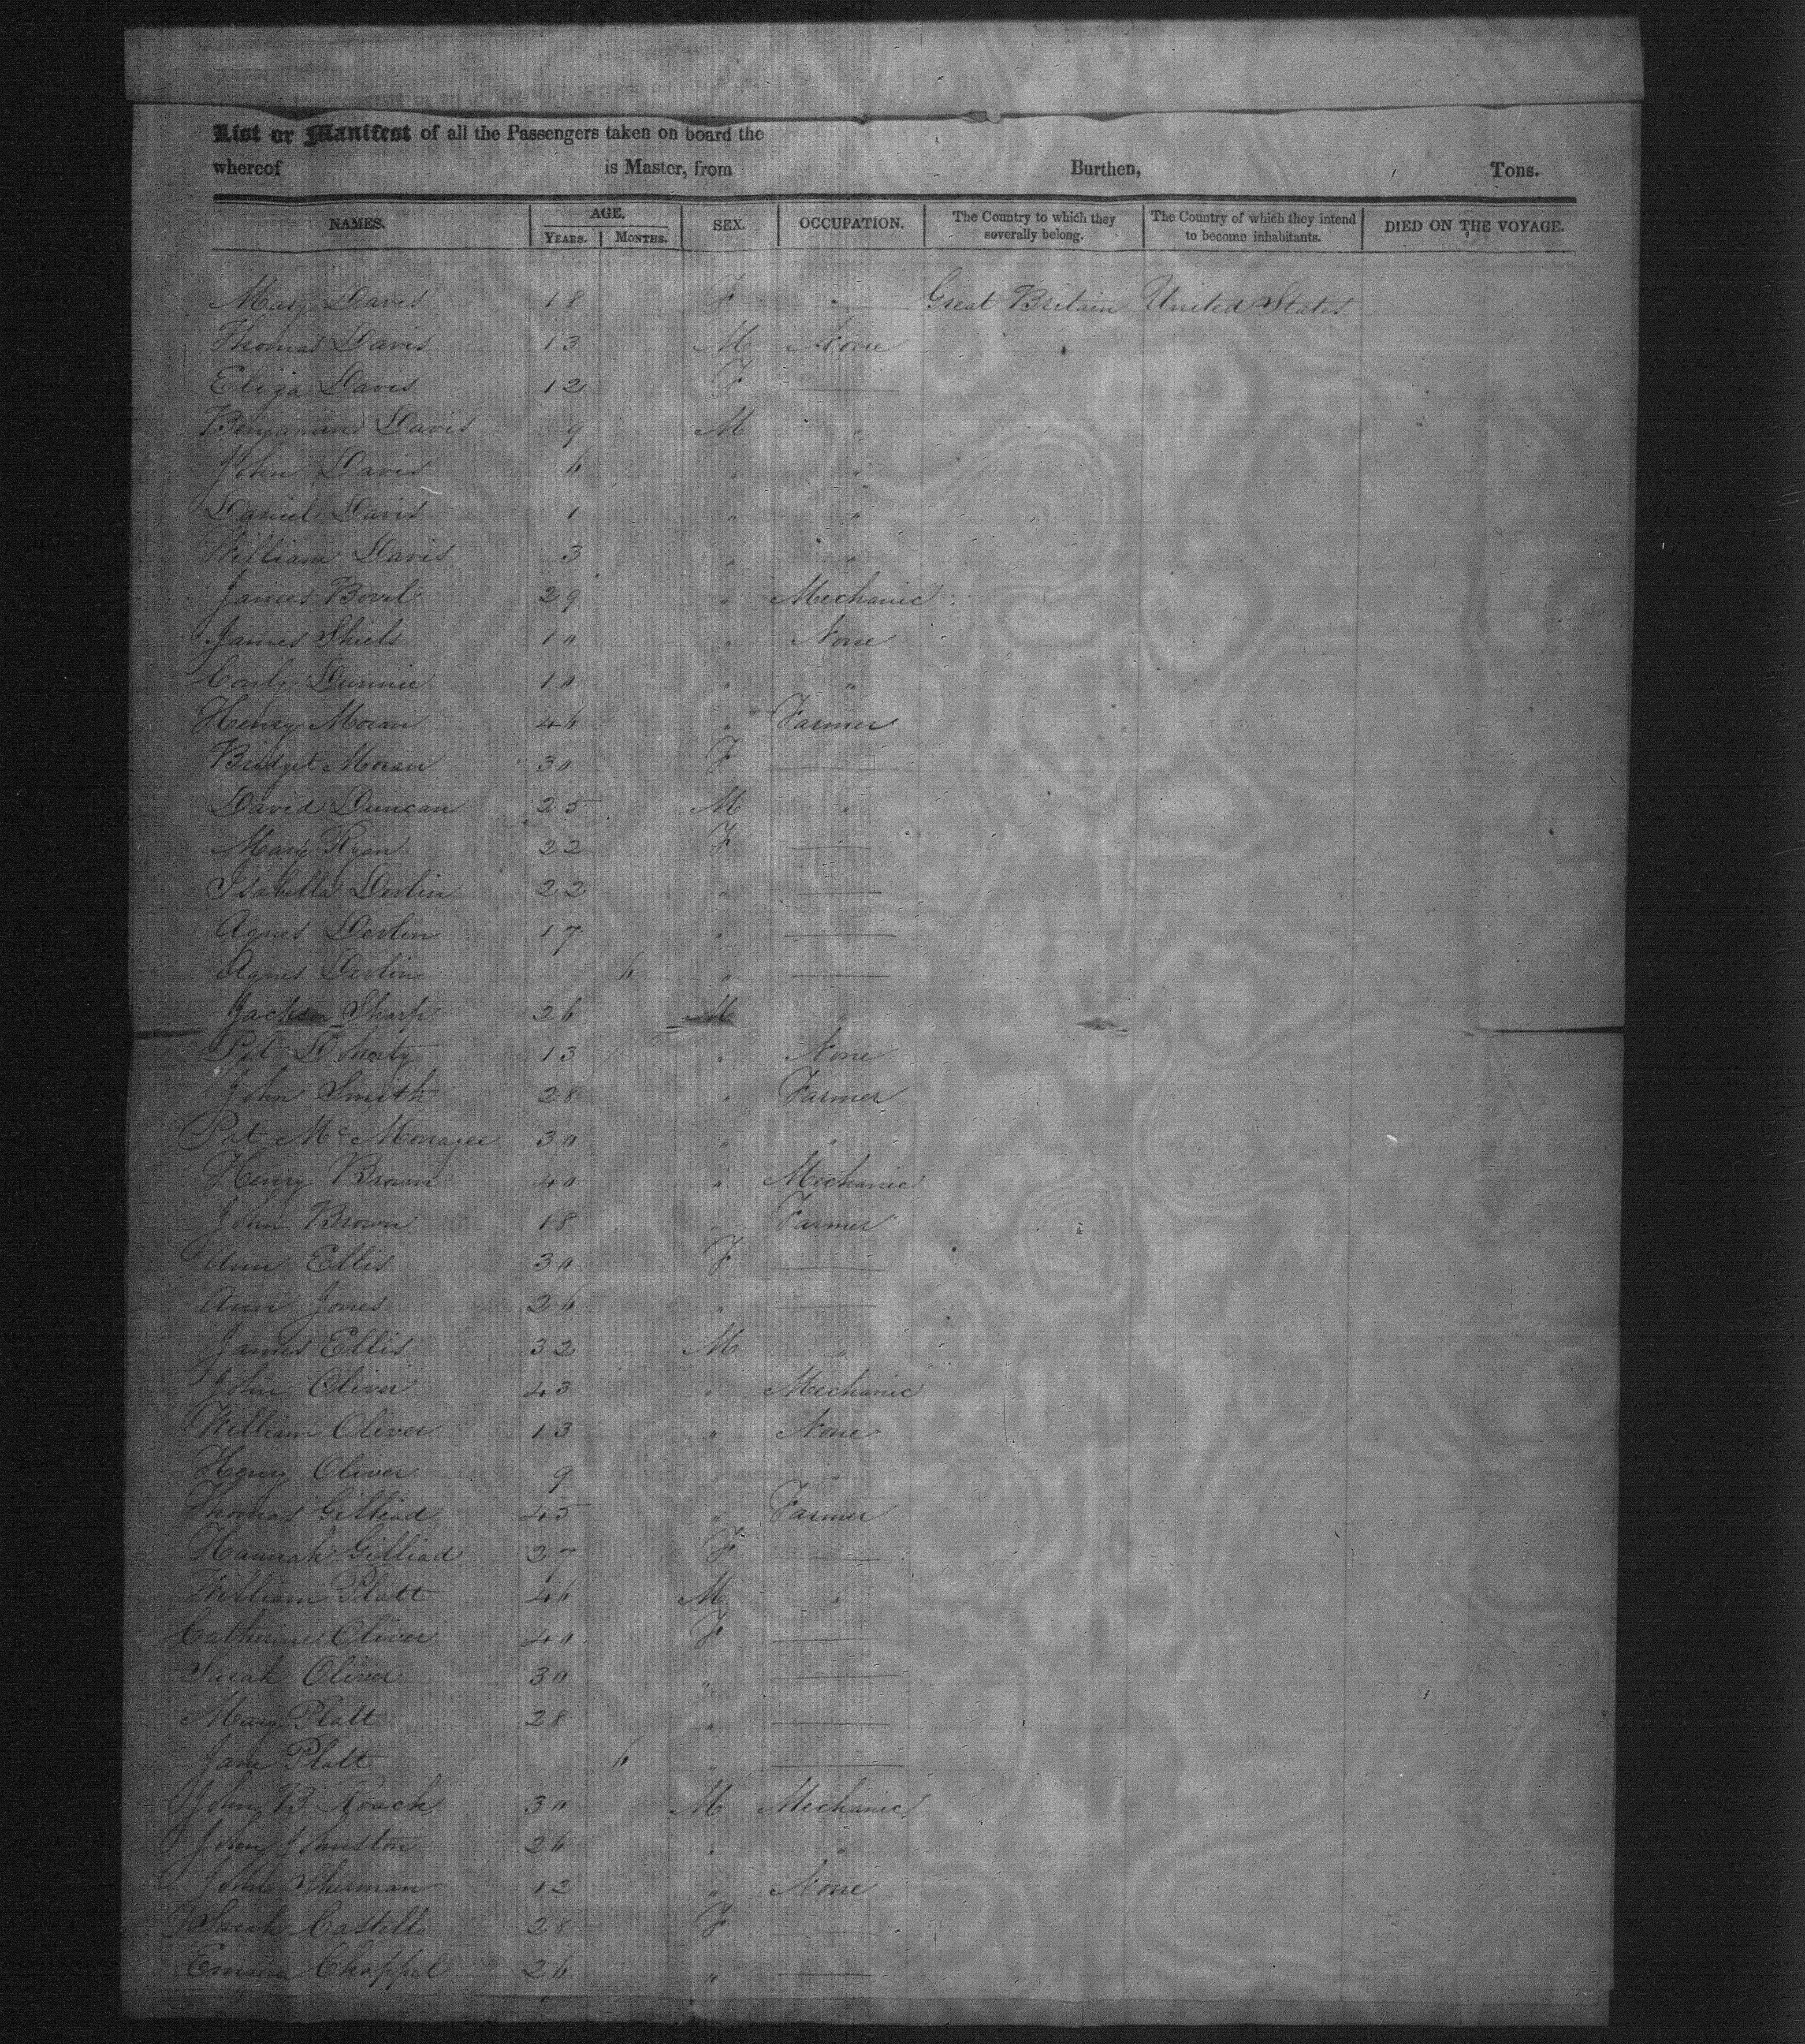 List or Manifest of all the Passengers taken on board the
whereof is Master, from Burthen, Tons.
NAMES. AGE. SEX. OCCUPATION. The Country to which they severally belong. The Country of which they intend to become inhabitants. DIED ON THE VOYAGE.
YEARS. MONTHS.
Mary Davis 18 F " Great Britain United States
Thomas Davis 13 M None
Eliza Davis 12 F
Benjamin Davis 9 M "
John Davis 6 " "
Daniel Davis 1 " "
William Davis 3 " "
James Bovil 29 " Mechanic
James Shiels 10 " None
Conly Dunnie 10 " "
Henry Moran 46 " Farmer
Bridget Moran 30 F
David Duncan 25 M "
Mary Ryan 22 F
Isabella Devlin 22 "
Agnes Devlin 17 "
Agnes Devlin 6 "
Jackson Sharp 26 M "
Pat Dohaty 13 " None
John Smith 28 " Farmer
Pat McMonagee 30 " "
Henry Brown 40 " Mechanic
John Brown 18 " Farmer
Ann Ellis 30 F
Ann Jones 26 "
James Ellis 32 M "
John Oliver 43 " Mechanic
William Oliver 13 " None
Heny Oliver 9 " "
Thomas Gilliad 45 " Farmer
Hannah Gilliad 27 F
William Platt 46 M "
Catherine Oliver 40 F
Sarah Oliver 30 "
Mary Platt 28 "
Jane Platt 6 "
John B. Roach 30 M Mechanic
John Johnston 26 " "
John Sherman 12 " None
Sarah Castello 28 F
Emma Chappel 26 "